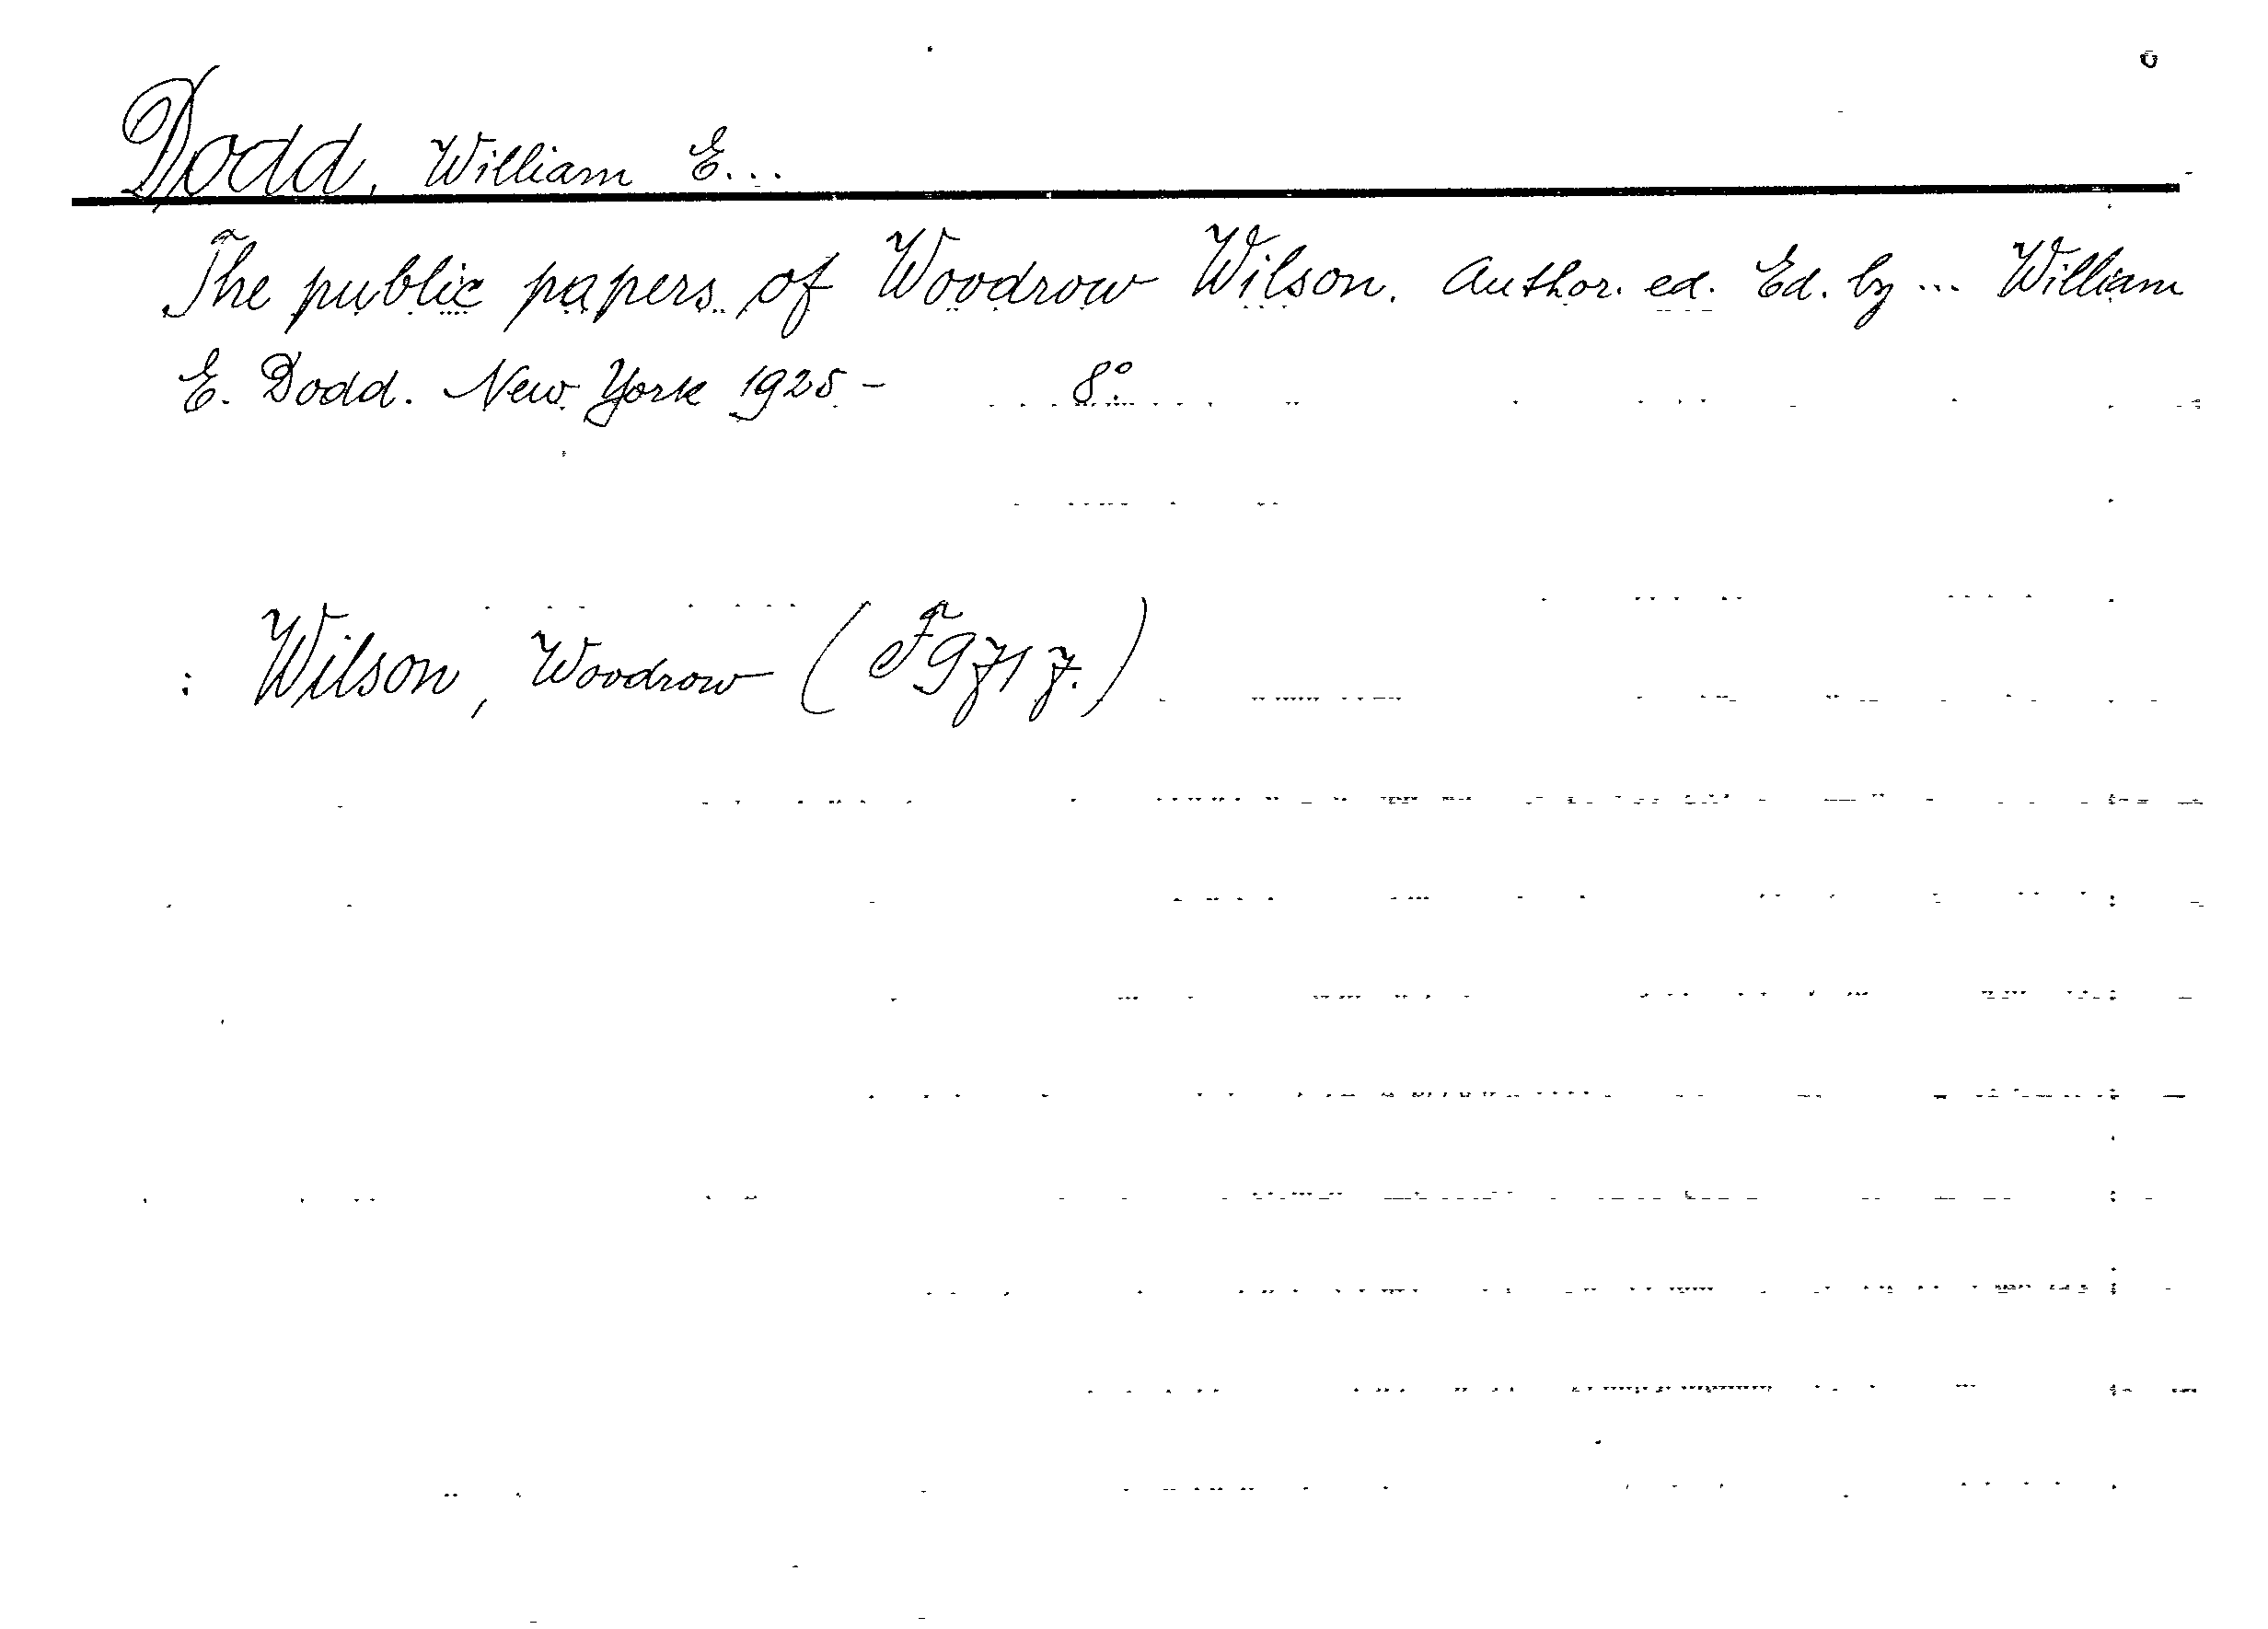 Dodd, William E...
The public papers of Woodrow Wilson. Author. ed. Ed. by ... William
E. Dodd. New York 1925 - 8°.
: Wilson, Woodrow (F 9717.)